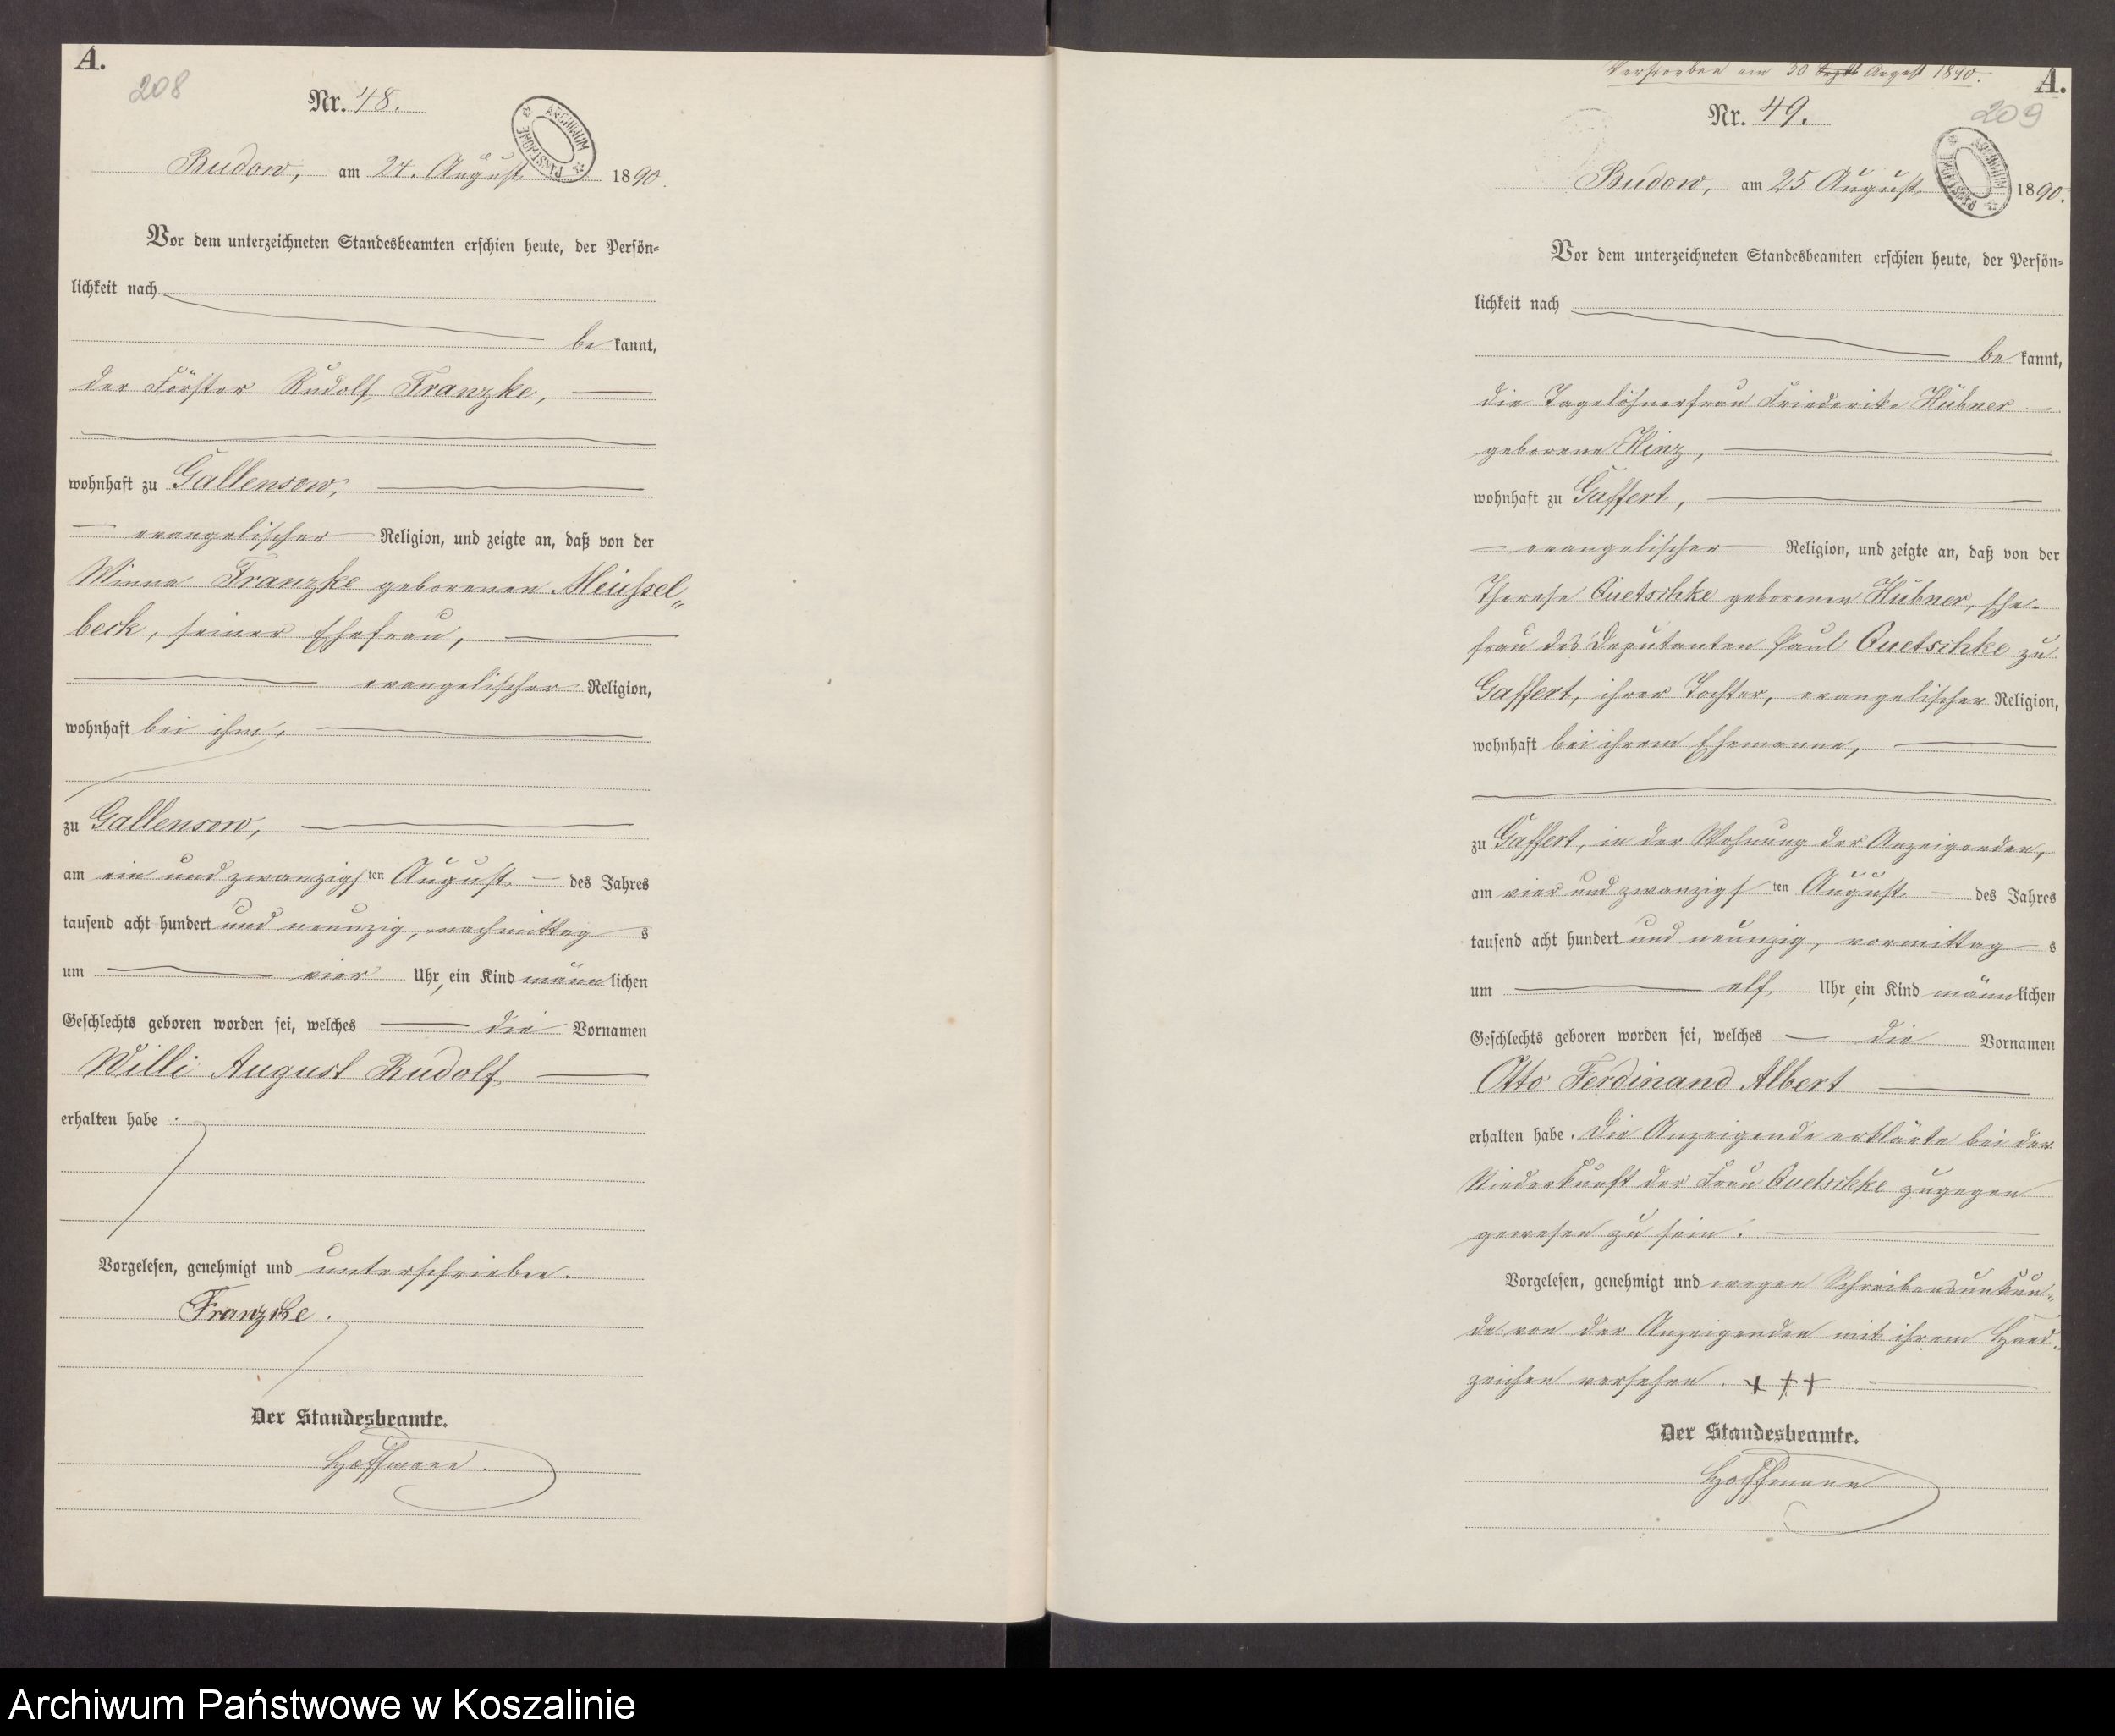 A.
208
Nr. 48.
ARCHIWUM PAŃSTWOWE
Budow, am 24. August 1890.
Vor dem unterzeichneten Standesbeamten erschien heute, der Persön-
lichkeit nach
be kannt,
der Förster Rudolf Franzke,
wohnhaft zu Gallensow,
evangelischer Religion, und zeigte an, daß von der
Minna Franzke geborenen Meußel-
beck, seiner Ehefrau,
evangelischer Religion,
wohnhaft bei ihm,
zu Gallensow,
am ein und zwanzigsten August des Jahres
tausend acht hundert und neunzig, nachmittag s
um vier Uhr, ein Kind männ lichen
Geschlechts geboren worden sei, welches die Vornamen
Willi August Rudolf
erhalten habe.
Vorgelesen, genehmigt und unterschrieben.
Franzke.
Der Standesbeamte.
Hoffmann.
Verstorben am 30 August 1890.
A.
209
Nr. 49.
ARCHIWUM PAŃSTWOWE
Budow, am 25 August 1890.
Vor dem unterzeichneten Standesbeamten erschien heute, der Persön-
lichkeit nach
be kannt,
die Tagelöhnerfrau Friederike Hübner
geborene Hinz,
wohnhaft zu Gaffert,
evangelischer Religion, und zeigte an, daß von der
Therese Quetschke geborenen Hübner, Ehe-
frau des Deputanten Paul Quetschke zu
Gaffert, ihrer Tochter, evangelischer Religion,
wohnhaft bei ihrem Ehemanne,
zu Gaffert, in der Wohnung der Anzeigenden,
am vier und zwanzigsten August des Jahres
tausend acht hundert und neunzig, vormittag s
um elf Uhr, ein Kind männ lichen
Geschlechts geboren worden sei, welches die Vornamen
Otto Ferdinand Albert
erhalten habe. Die Anzeigende erklärte bei der
Niederkunft der Frau Quetschke zugegen
gewesen zu sein.
Vorgelesen, genehmigt und wegen Schreibensunkun-
de von der Anzeigenden mit ihrem Hand-
zeichen versehen. +++
Der Standesbeamte.
Hoffmann
Archiwum Państwowe w Koszalinie